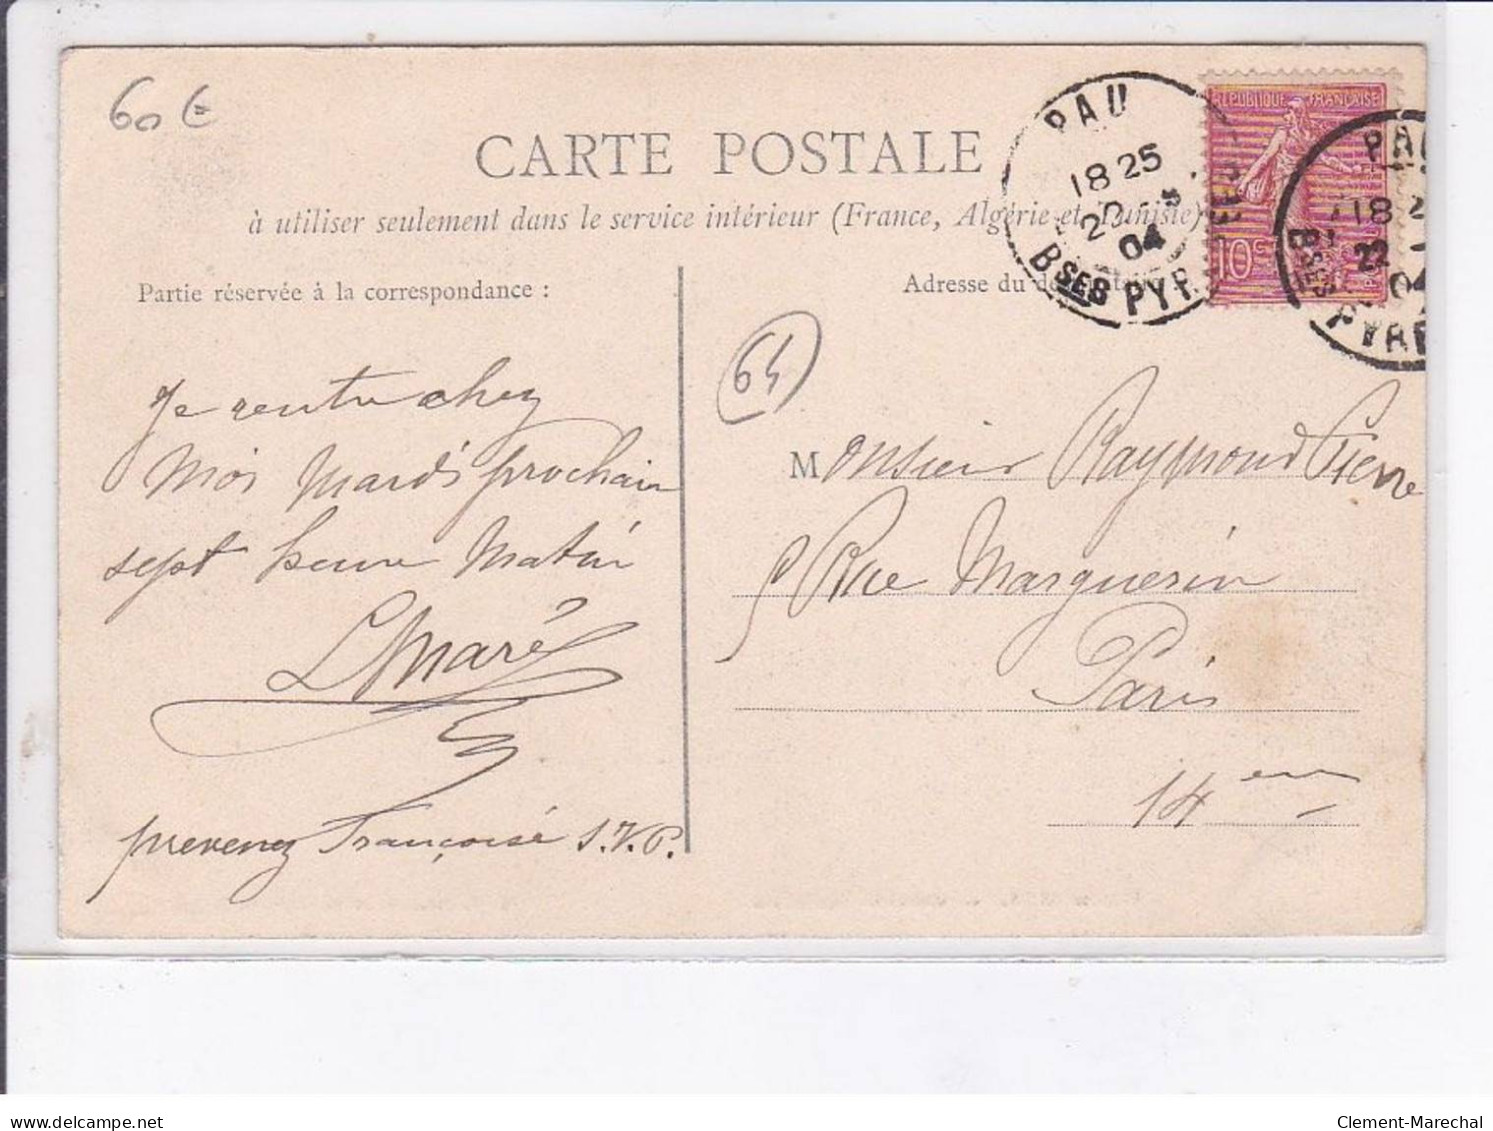 60 €
CARTE POSTALE
à utiliser seulement dans le service intérieur (France, Algérie et Tunisie)
PAU
18 25
04
BSES PYR
REPUBLIQUE FRANÇAISE
10c
PAU
18
22
04
BSES PYR
Partie réservée à la correspondance :
Adresse du
64
Je rentre chez
Moi Mardi prochain
sept heure Matin
LMaré
prevenez Françoise S.V.P.
Monsieur Raymond Pierre
Rue Marguerin
Paris
14 em
delcampe.net
Clement-Marechal